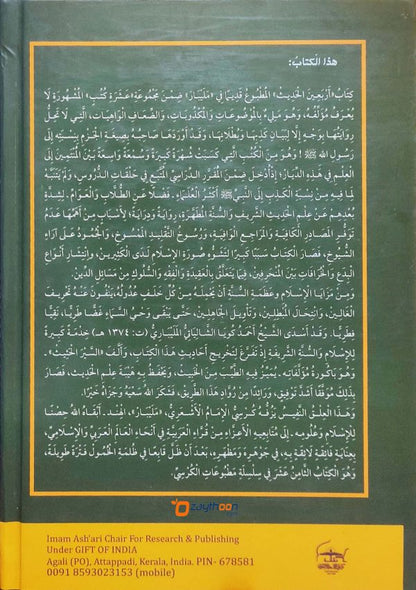 هذا الْكتابُ:
كِتَابُ «أَرْبَعِينَ الْحَدِيثَ» الْمَطْبُوعُ قَدِيمًا فِي «مَلَيْبَارَ» ضِمْنَ مَجْمُوعَةِ «عَشَرَةِ كُتُبٍ» الْمَشْهُورَةِ لَا
يُعْرَفُ مُؤَلِّفُهُ، وَهُوَ مَلِيءٌ بِالْمَوْضُوعَاتِ وَالْمَكْذُوبَاتِ، وَالضِّعَافِ الْوَاهِيَاتِ، الَّتِي لَا تَحِلُّ
رِوَايَتُهَا بِوَجْهٍ إِلَّا لِبَيَانِ كَذِبِهَا وَبُطْلَانِهَا، وَقَدْ أَوْرَدَهَا صَاحِبُهُ بِصِيغَةِ الْجَزْمِ بِنِسْبَتِهِ إِلَى
رَسُولِ اللهِ ﷺ! وَهُوَ مِنَ الْكُتُبِ الَّتِي كَسَبَتْ شُهْرَةً كَبِيرَةً وَسُمْعَةً وَاسِعَةً بَيْنَ الْمُنْتَمِينَ إِلَى
الْعِلْمِ فِي هَذِهِ الدِّيَارِ؛ إِذْ أُدْخِلَ ضِمْنَ الْمُقَرَّرِ الدِّرَاسِيِّ الْمُتَّبَعِ فِي حَلَقَاتِ الدُّرُوسِ، وَلَمْ يَتَنَبَّهْ
لِمَا فِيهِ مِنْ نِسْبَةِ الْكَذِبِ إِلَى النَّبِيِّ ﷺ أَكْثَرُ الْعُلَمَاءِ، فَضْلًا عَنِ الطُّلَّابِ وَالْعَوَامِّ؛ لِشِدَّةِ
بُعْدِهِمْ عَنْ عِلْمِ الْحَدِيثِ الشَّرِيفِ وَالسُّنَّةِ الْمُطَهَّرَةِ، رِوَايَةً وَدِرَايَةً؛ لِأَسْبَابٍ مِنْ أَهَمِّهَا عَدَمُ
تَوَفُّرِ الْمَصَادِرِ الْكَافِيَةِ وَالْمَرَاجِعِ الْوَافِيَةِ، وَرُسُوخُ التَّقْلِيدِ الْمَمْسُوخِ، وَالْجُمُودُ عَلَى آرَاءِ
الشُّيُوخِ، فَصَارَ الْكِتَابُ سَبَبًا كَبِيرًا لِتَشَوُّهِ صُورَةِ الْإِسْلَامِ لَدَى الْكَثِيرِينَ، وَانْتِشَارِ أَنْوَاعِ
الْبِدَعِ وَالْخُرَافَاتِ بَيْنَ الْمُنْحَرِفِينَ، فِيمَا يَتَعَلَّقُ بِالْعَقِيدَةِ وَالْفِقْهِ وَالسُّلُوكِ مِنْ مَسَائِلِ الدِّينِ.
وَمِنْ مَزَايَا الْإِسْلَامِ وَعَظَمَةِ السُّنَّةِ أَنْ يَحْمِلَهُ مِنْ كُلِّ خَلَفٍ عُدُولُهُ، يَنْفُونَ عَنْهُ تَحْرِيفَ
الْغَالِينَ، وَانْتِحَالَ الْمُبْطِلِينَ، وَتَأْوِيلَ الْجَاهِلِينَ، حَتَّى يَبْقَى وَحْيُ السَّمَاءِ غَضًّا طَرِيًّا، نَقِيًّا
فِطْرِيًّا. وَقَدْ أَسْدَى الشَّيْخُ أَحْمَدُ كُويَا الشَّالِيَاتِيُّ الْمَلَيْبَارِيُّ (ت: ١٣٧٤ هـ) خِدْمَةً كَبِيرَةً
لِلْإِسْلَامِ وَالسُّنَّةِ الشَّرِيفَةِ إِذْ تَفَرَّغَ لِتَخْرِيجِ أَحَادِيثِ هَذَا الْكِتَابِ، وَأَلَّفَ «السَّيْرَ الْحَثِيثَ»،
وَهُوَ بَاكُورَةُ مُؤَلَّفَاتِهِ. يُمَيِّزُ فِيهِ الطَّيِّبَ مِنَ الْخَبِيثِ، وَيَحْفَظُ بِهِ هَيْبَةَ عِلْمِ الْحَدِيثِ، فَصَارَ
بِذَلِكَ مُوَفَّقًا أَشَدَّ تَوْفِيقٍ، وَرَائِدًا مِنْ رُوَّادِ هَذَا الطَّرِيقِ، فَشَكَرَ اللهُ سَعْيَهُ وَجَزَاهُ خَيْرًا.
وَهَذَا الْعِلْقُ النَّفِيسُ يَزُفُّهُ كُرْسِيُّ الْإِمَامِ الْأَشْعَرِيِّ، «مَلَيْبَارَ»، الْهِنْدِ ـ أَبْقَاهُ اللهُ حِصْنًا
لِلْإِسْلَامِ وَعُلُومِهِ ـ إِلَى مُتَابِعِيهِ الْأَعِزَّاءِ مِنْ قُرَّاءِ الْعَرَبِيَّةِ فِي أَنْحَاءِ الْعَالَمِ الْعَرَبِيِّ وَالْإِسْلَامِيِّ،
بِعِنَايَةٍ فَائِقَةٍ لَائِقَةٍ بِهِ، فِي جَوْهَرِهِ وَمَظْهَرِهِ، بَعْدَ أَنْ ظَلَّ قَابِعًا فِي ظُلْمَةِ الْخُمُولِ فَتْرَةً طَوِيلَةً،
وَهُوَ الْكِتَابُ الثَّامِنَ عَشَرَ فِي سِلْسِلَةِ مَطْبُوعَاتِ الْكُرْسِيِّ.
zaythoon
Imam Ash'ari Chair For Research & Publishing
Under GIFT OF INDIA
Agali (PO), Attappadi, Kerala, India. PIN- 678581
0091 8593023153 (mobile)